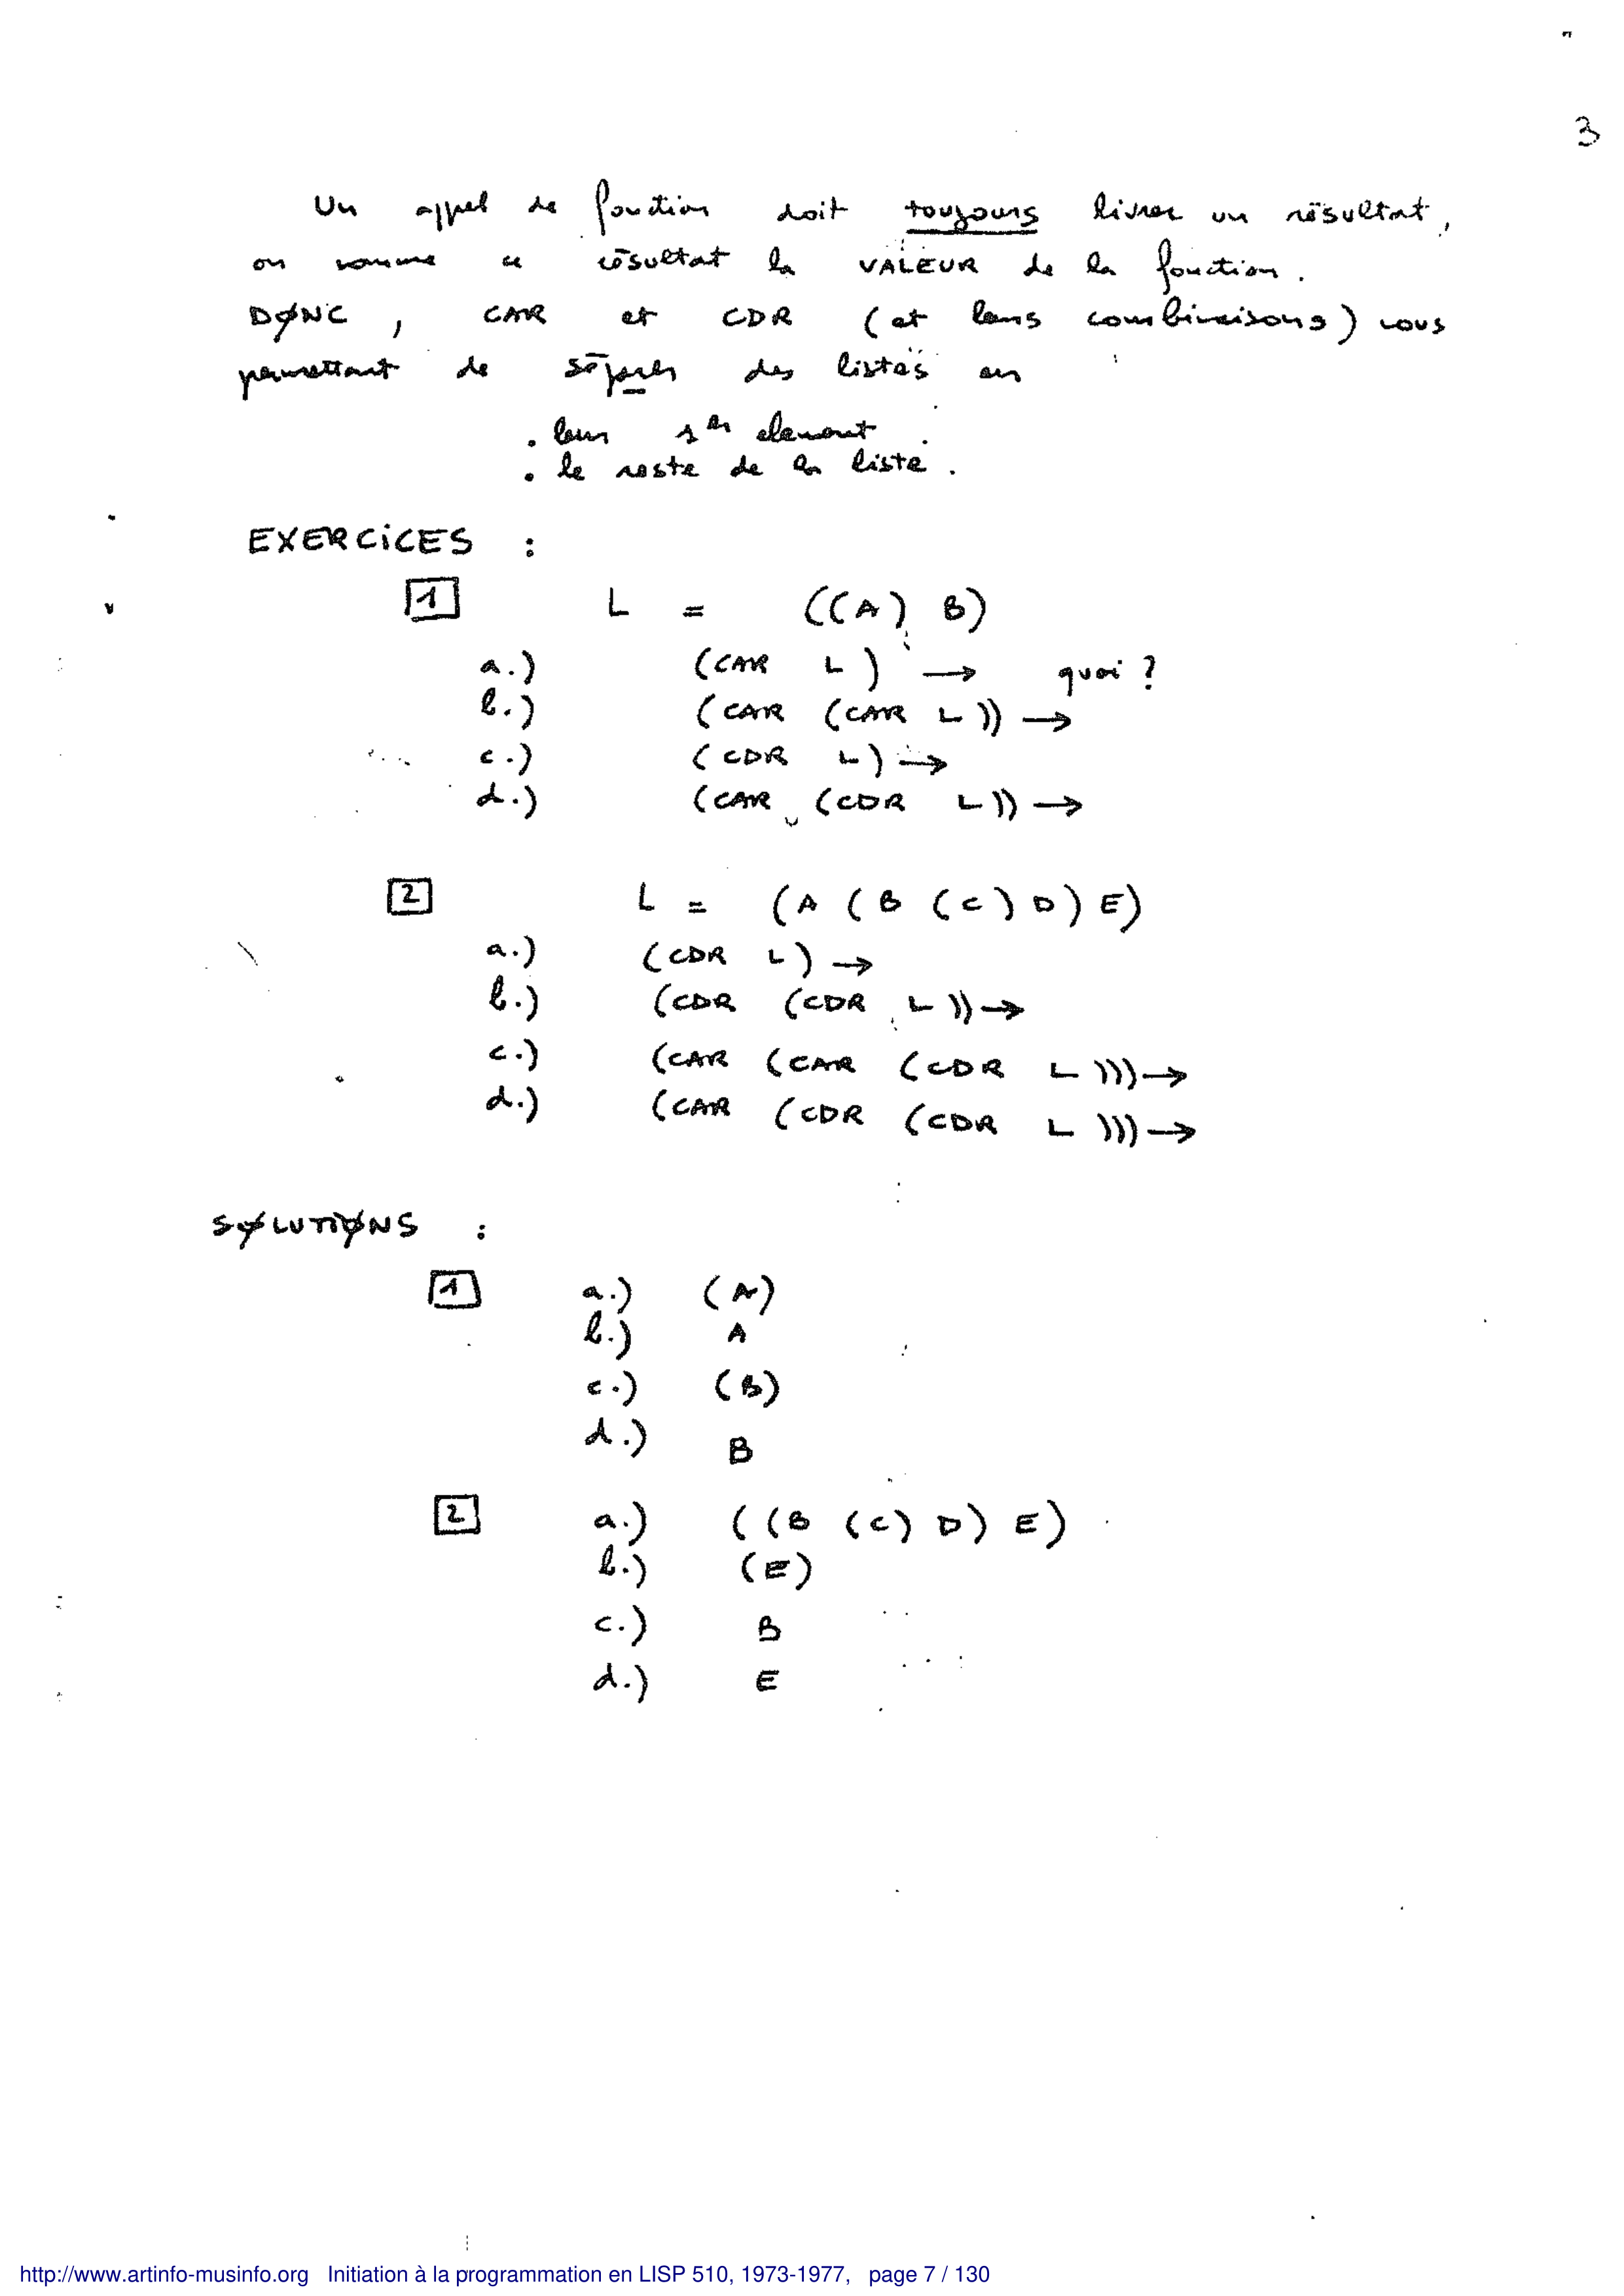 3
Un appel de fonction doit toujours livrer un résultat,
on nomme ce résultat la VALEUR de la fonction.
DØNC , CAR et CDR (et leurs combinaisons) vous
permettent de séparer des listes en
. leur 1er element
. le reste de la liste .
EXERCiCES :
1 L = ((A) B)
a.) (CAR L) → quoi ?
b.) (CAR (CAR L)) →
c.) (CDR L) →
d.) (CAR (CDR L)) →
2 L = (A (B (C) D) E)
a.) (CDR L) →
b.) (CDR (CDR L)) →
c.) (CAR (CAR (CDR L))) →
d.) (CAR (CDR (CDR L))) →
SØLUTIØNS :
1 a.) (A)
b.) A
c.) (B)
d.) B
2 a.) ((B (C) D) E)
b.) (E)
c.) B
d.) E
http://www.artinfo-musinfo.org Initiation à la programmation en LISP 510, 1973-1977, page 7 / 130